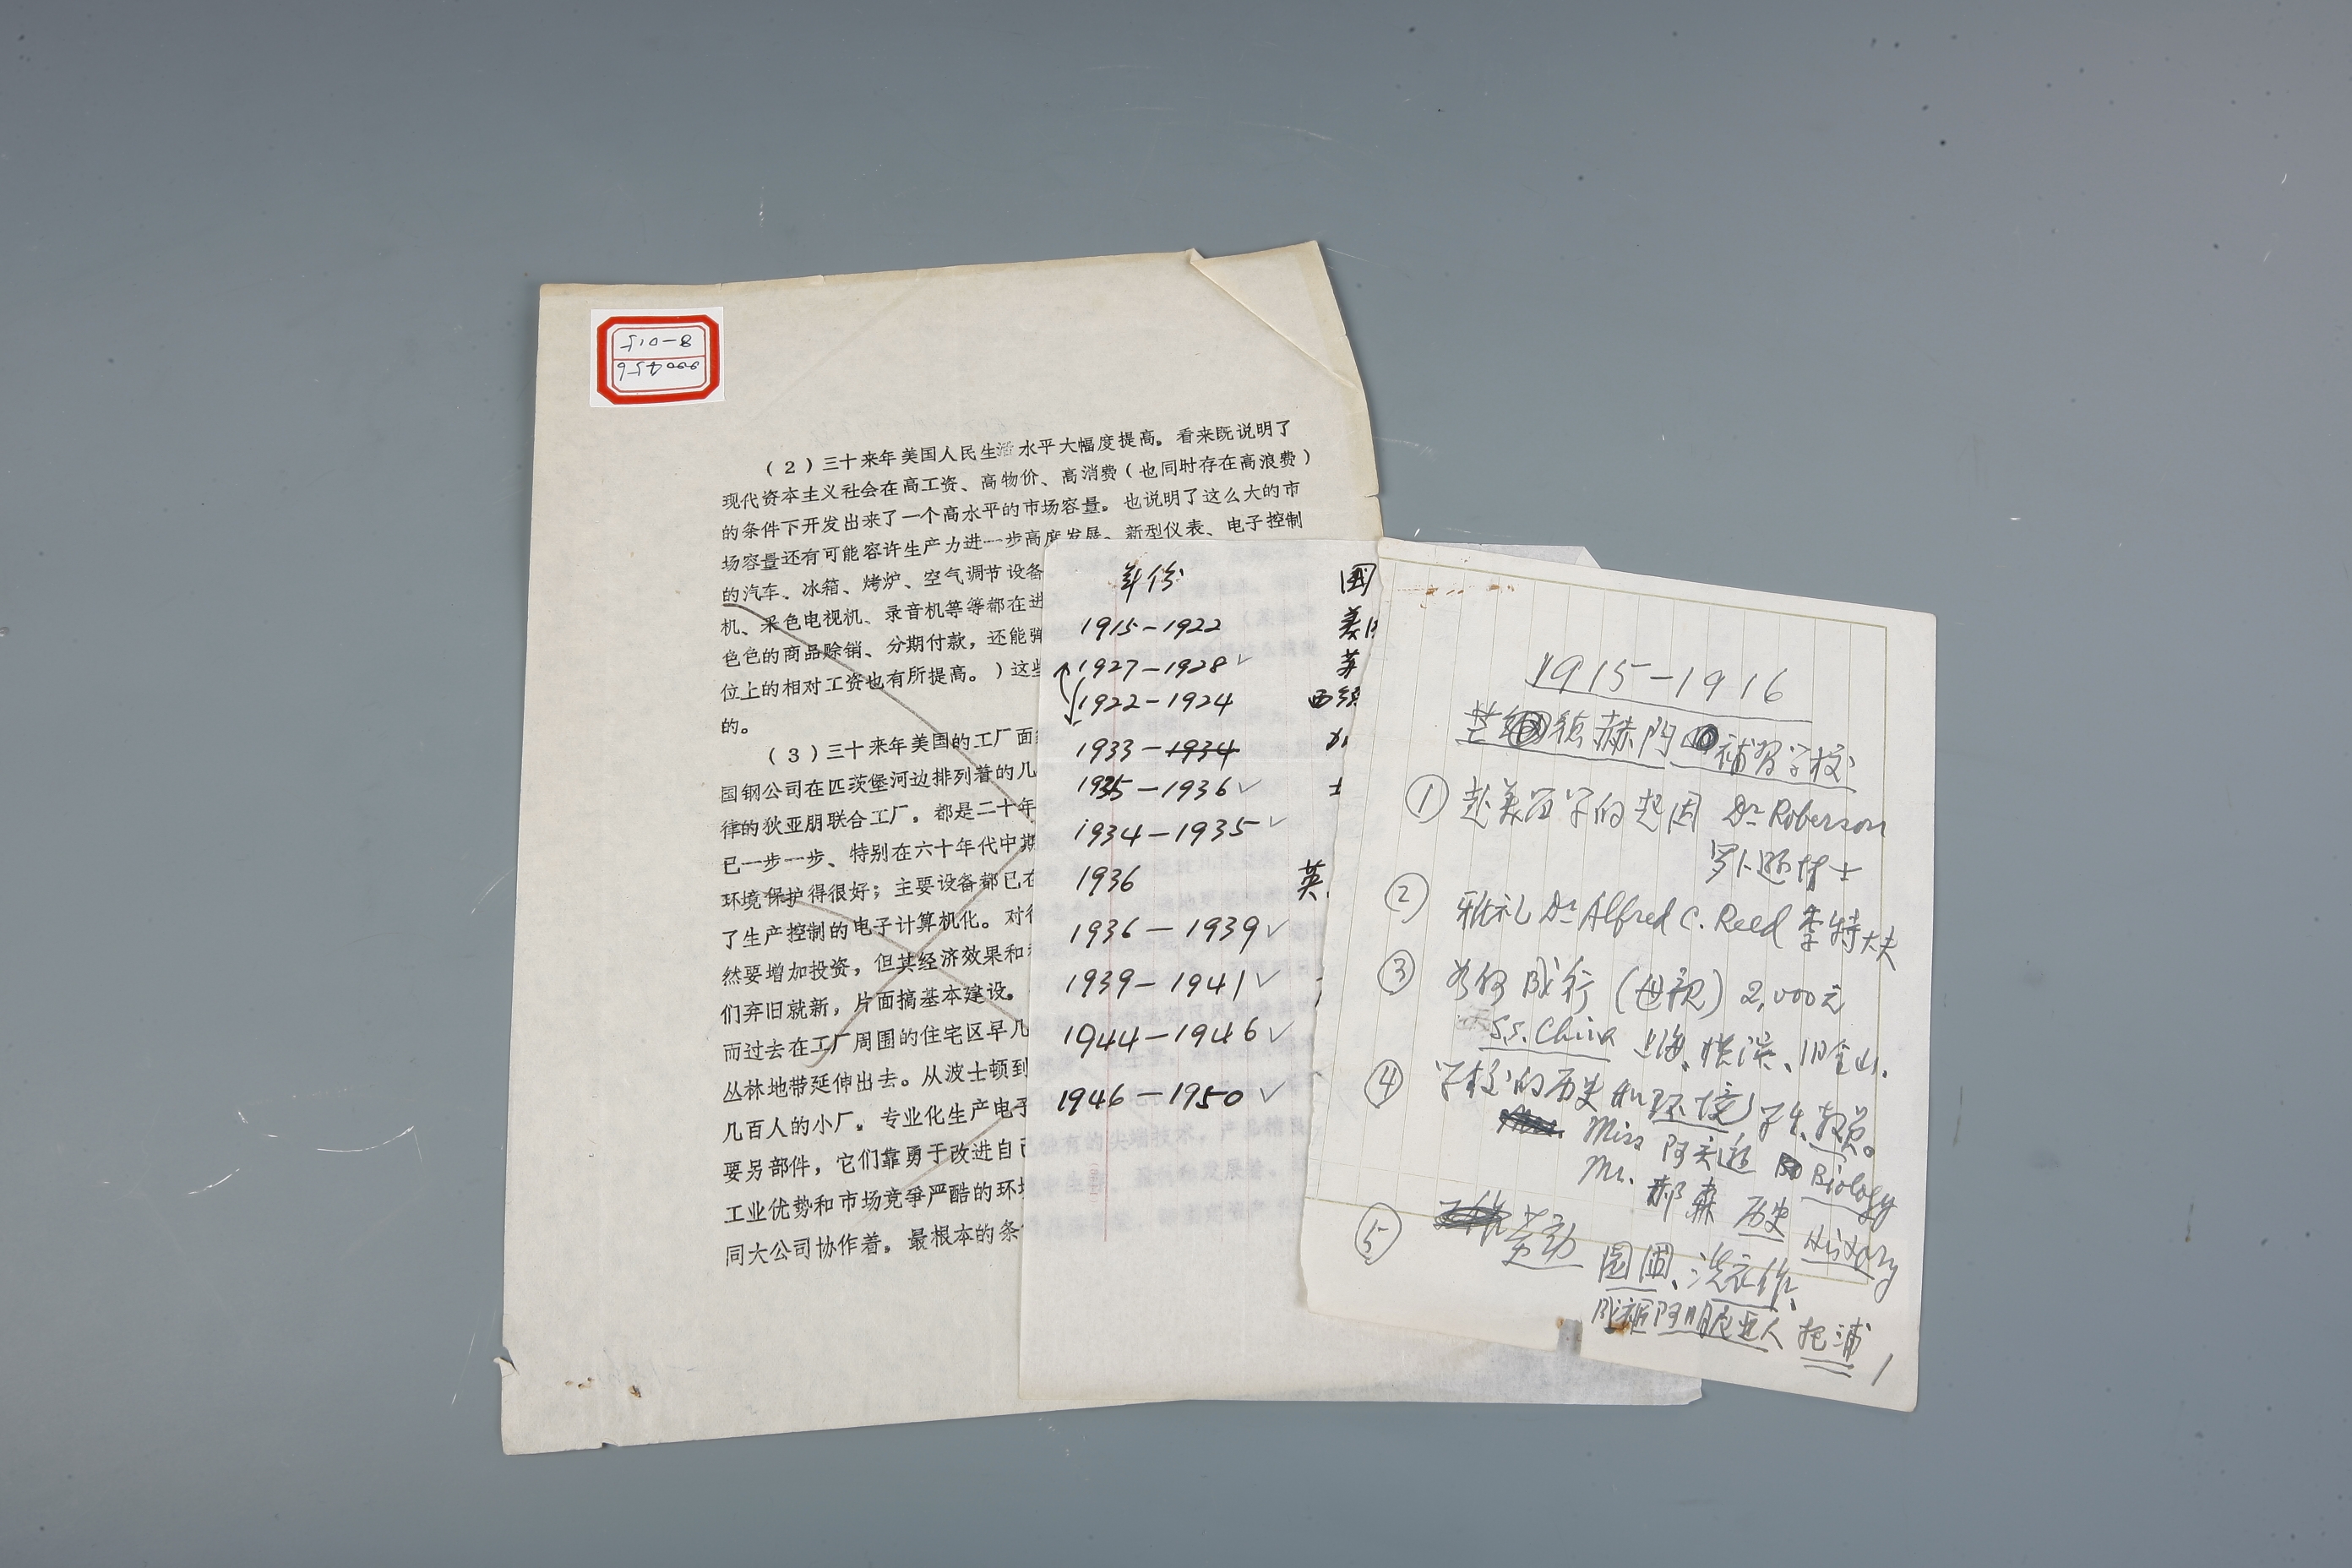 8-015
000456
(2)三十来年美国人民生活水平大幅度提高。看来既说明了
现代资本主义社会在高工资、高物价、高消费(也同时存在高浪费)
的条件下开发出来了一个高水平的市场容量。也说明了这么大的市
场容量还有可能容许生产力进一步高度发展。新型仪表、电子控制
的汽车、冰箱、烤炉、空气调节设备
机、采色电视机、录音机等等都在进
色色的商品赊销、分期付款,还能弹
位上的相对工资也有所提高。)这些
的。
(3)三十来年美国的工厂面
国钢公司在匹茨堡河边排列着的几
律的狄亚朋联合工厂。都是二十年
已一步一步、特别在六十年代中期
环境保护得很好;主要设备都已在
了生产控制的电子计算机化。对
然要增加投资,但其经济效果和
们弃旧就新,片面搞基本建设。
而过去在工厂周围的住宅区早几
丛林地带延伸出去。从波士顿到
几百人的小厂。专业化生产电子
要另部件,它们靠勇于改进自己
工业优势和市场竞争严酷的环境
同大公司协作着。最根本的条
年份 国
1915-1922 美国
1927-1928✓
1922-1924 西
1933-1934
1935-1936✓ 土
1934-1935✓
1936 英
1936-1939✓
1939-1941✓
1944-1946✓
1946-1950✓
1915-1916
德赫阿 補習学校
① 赴美留学的起因 Dr Roberson
罗卜逊博士
② 雅礼 Dr Alfred C. Reed 李特大夫
③ 如何成行(母親)2,000元
S.S. China 上海、横滨、旧金山.
④ 学校的历史和环境,学生、教员。
Miss 阿 Biology
Mr. 郝森 历史 History
⑤ 劳动 園圃、洗衣作、
阿明尼亚人 托浦
1